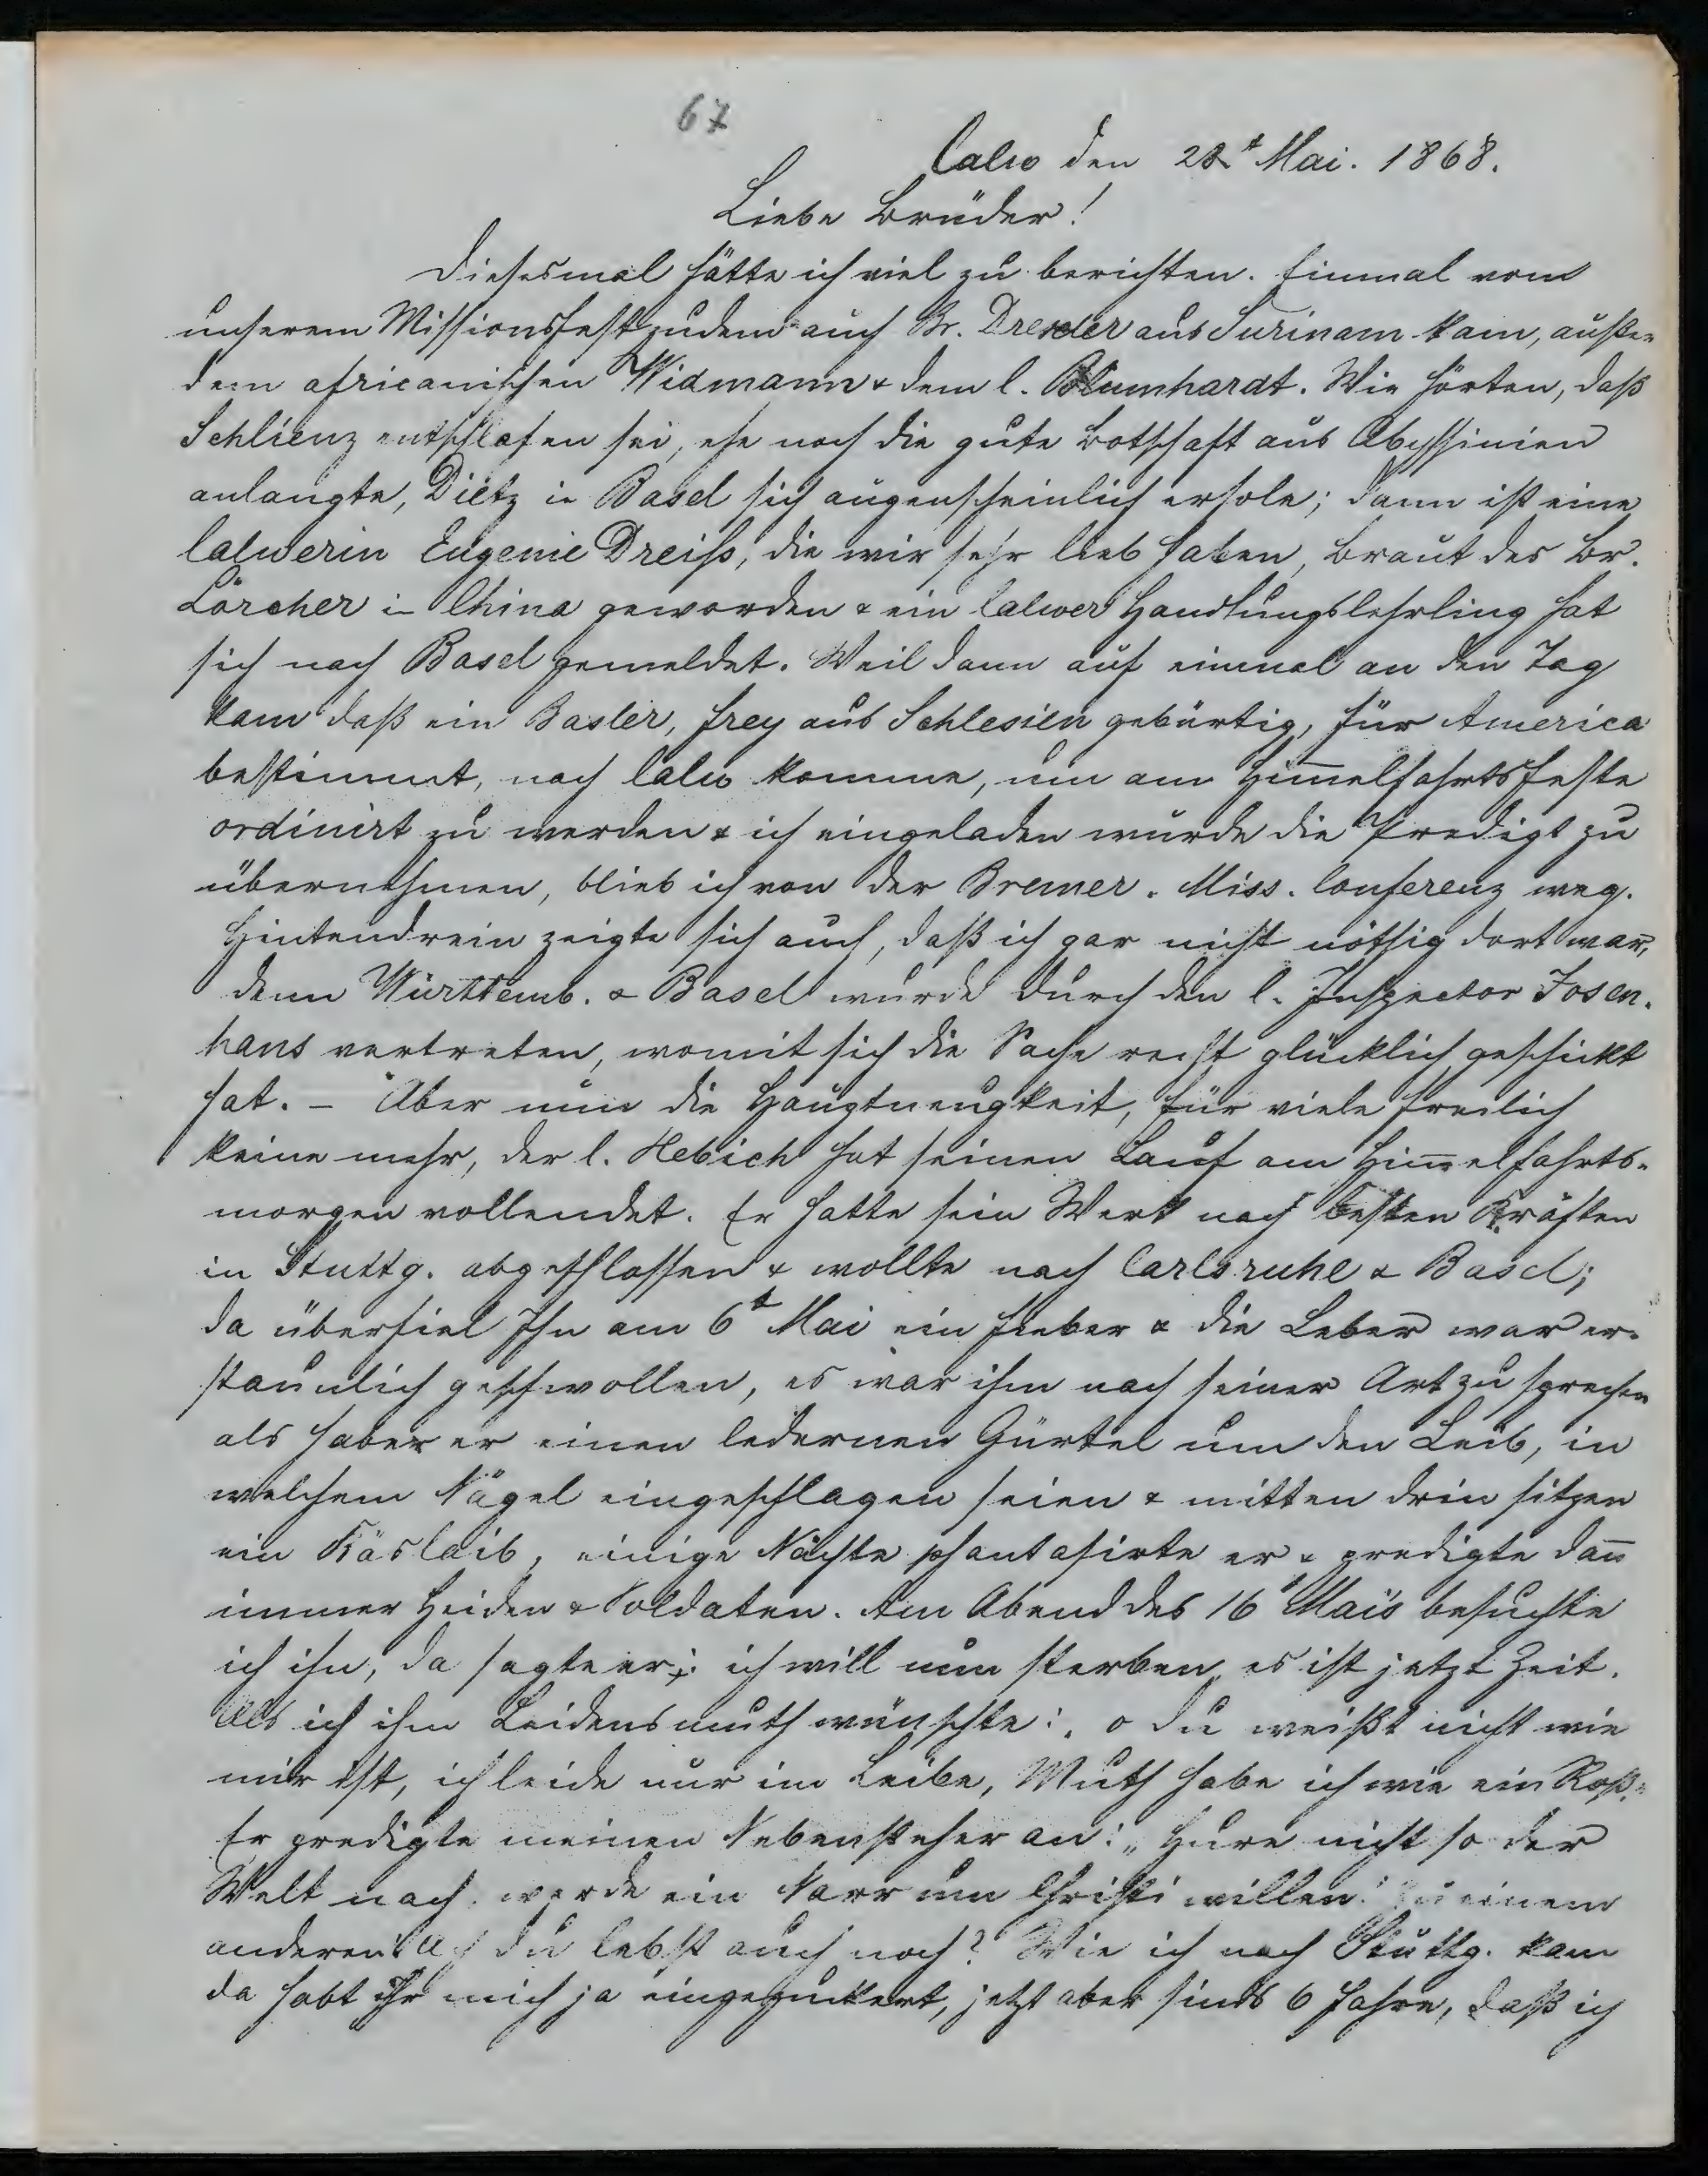 67
Calw den 28t Mai. 1868.
Liebe Brüder!
Diesesmal hätte ich viel zu berichten. Einmal vom
unserem Missionsfest zudem auch Br. Drexler aus Surinam kam, außer
dem africanischen Widmann & dem l. Blumhardt. Wir hörten, daß
Schlienz entschlafen sei, ehe noch die gute Botschaft aus Abyssinien
anlangte, Dietz in Basel sich augenscheinlich erhole; dann ist eine
Calwerin Eugenie Dreiss, die wir sehr lieb haben, Braut des Br.
Lörcher in China geworden & ein Calwer Handlungslehrling hat
sich nach Basel gemeldet. Weil dann auf einmal an den Tag
kam daß ein Basler, Frey aus Schlesien gebürtig, für America
bestimmt, nach Calw komme, um am Him̄elfahrtsfeste
ordinirt zu werden & ich eingeladen wurde die Predigt zu
übernehmen, blieb ich von der Bremer. Miss. Conferenz weg.
Hintendrein zeigte sich auch, daß ich gar nicht nöthig dort war,
denn Württemb. & Basel wurde durch den l. Inspector Josen-
hans vertreten, womit sich die Sache recht glücklich geschickt
hat. – Aber nun die Hauptneuigkeit, für viele freilich
keine mehr, der l. Hebich hat seinen Lauf am Him̄elfahrts-
morgen vollendet. Er hatte sein Werk nach besten Kräften
in Stuttg. abgeschlossen & wollte nach Carlsruhe & Basel;
da überfiel Ihn am 6t Mai ein Fieber & die Leber war er-
staunlich geschwollen, es war ihm nach seiner Art zu sprechen
als habe er einen ledernen Gürtel um den Leib, in
welchem Nägel eingeschlagen seien & mitten drin sitzen
ein Käslaib, einige Nächte phantasirte er & predigte dan̄
immer Heiden & Soldaten. Am Abend des 16 Mai's besuchte
ich ihn, da sagte er: ich will nun sterben, es ist jetzt Zeit.
Als ich ihm Leidensmuth wünschte: „o du weißt nicht wie
mir ist, ich leide nur im Leibe, Muth habe ich wie ein Roß."
Er predigte meinen Nebensteher an: „Hure nicht so der
Welt nach, werde ein Narr um Christi willen." Zu einem
anderen: Ach du lebst auch noch? Wie ich nach Stuttg. kam
da habt ihr mich ja eingezuckert, jetzt aber sinds 6 Jahre, daß ich